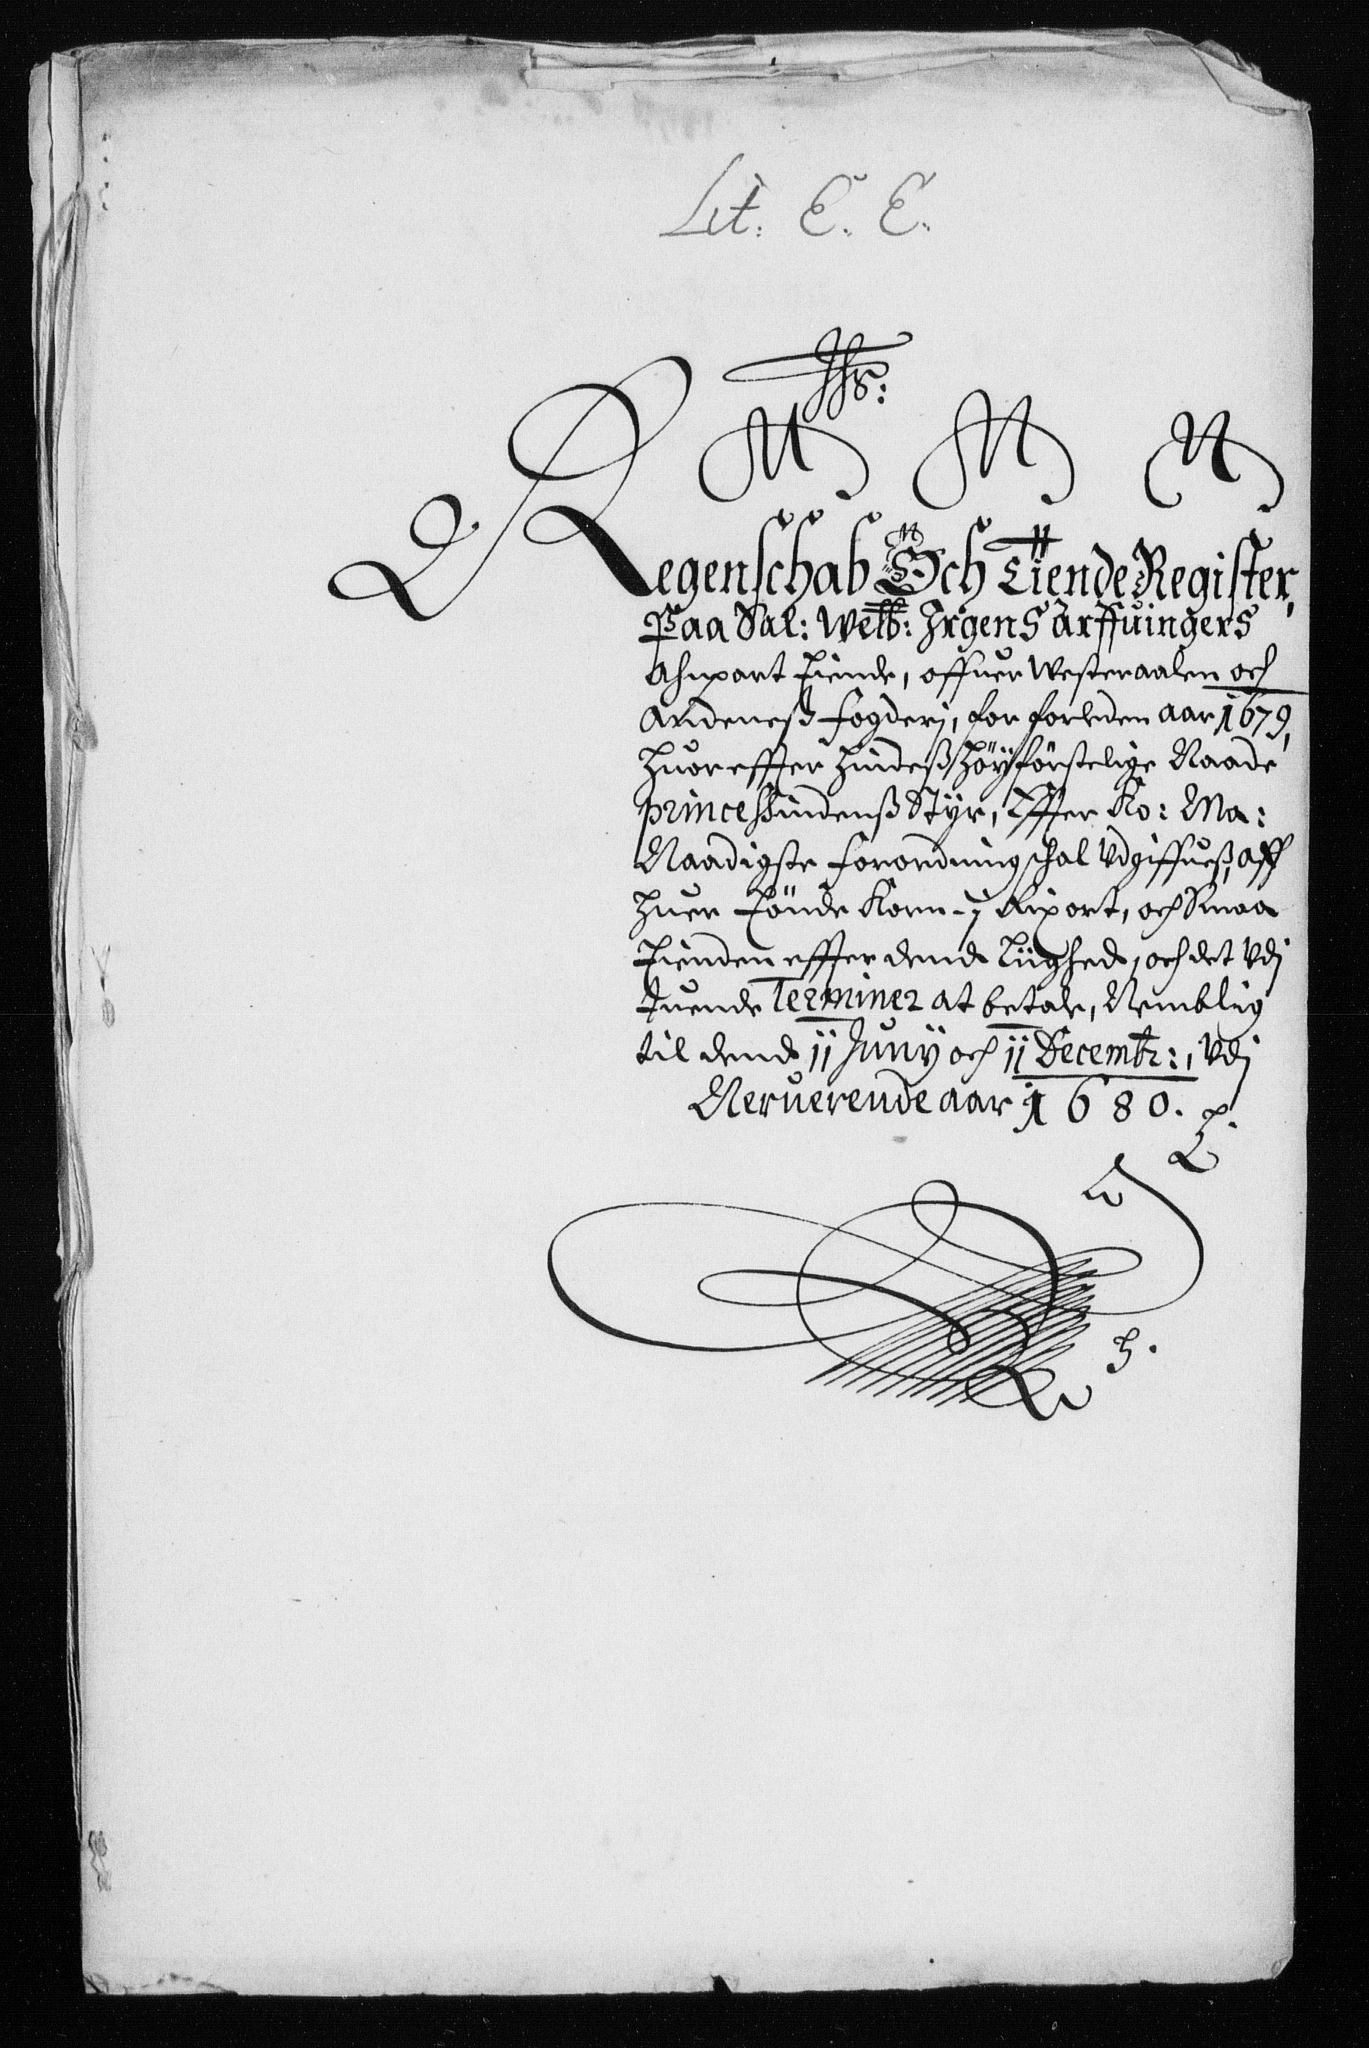 Lit: E. E.
Jhs:
Regenschab Och Tiende Register,
Paa Sal: Welb: Irgens Arffuingers
Anpart Tiende, offuer Westeraalen och
Andeneß fogderj, for forleden aar 1679,
Huoreffter Hindeß Höyförstelige Naade
Princessindenß Styr, Effter Ko: Ma:
Naadigste forordning schal Vdgiffueß, aff
Huer Tönde Korn - j Rixort, och Smaa
Tienden effter dend Liighed, och det Vdj
Tuende Terminer at betale, Nemblig
til dend 11 Juny och 11 Decembr:, Vdj
Neruerende aar 1680.